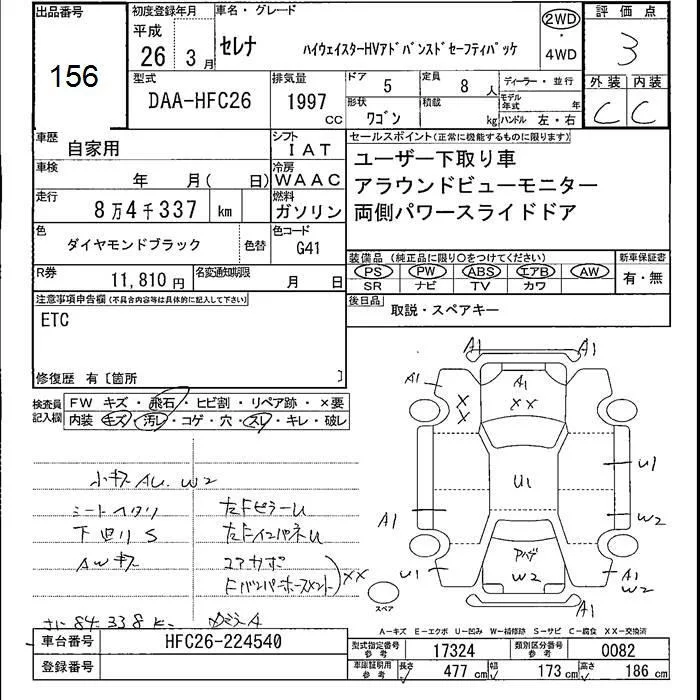 出品番号
156
初度登録年月
平成
26 3月
車名・グレード
セレナ ハイウェイスターHVアドバンスドセーフティパッケ
2WD
・
4WD
評価点
3
型式
DAA-HFC26
排気量
1997 CC
ドア 5
定員 8 人
形状 ワゴン
積載 kg
ディーラー・並行
モデル年式 年
ハンドル 左・右
外装 内装
C C
車歴 自家用
シフト IAT
車検 年 月( 日)
冷房 WAAC
走行 8万4千337 km
燃料 ガソリン
色 ダイヤモンドブラック
色替
色コード G41
R券 11,810 円
名変通知期限 月 日
セールスポイント(正常に機能するものに限ります)
ユーザー下取り車
アラウンドビューモニター
両側パワースライドドア
装備品 (純正品に限り○をつけてください)
PS PW ABS エアB AW
SR ナビ TV カワ
新車保証書
有・無
後日品 取説・スペアキー
注意事項申告欄(不具合内容等は具体的に記入して下さい)
ETC
修復歴 有〔箇所 〕
検査員記入欄
FW キズ・飛石・ヒビ割・リペア跡・×要
内装 キズ・汚レ・コゲ・穴・スレ・キレ・破レ
小キズ AU. W2
シートヘタリ
下回リ S
AWキズ
左FピラーU
左FインパネU
コアサポ
Fバンパーホースメント ××
84.338
A1 A1
A1
A1
××
××
U1
U1
A1
W2
U1
W2
A1
W2
A1
スペア
A-キズ E-エクボ U-凹み W-補修跡 S-サビ C-腐食 XX-交換済
車台番号 HFC26-224540
登録番号
型式指定番号 参考 17324
類別区分番号 参考 0082
車庫証明用 参考 長さ 477 cm 幅 173 cm 高さ 186 cm